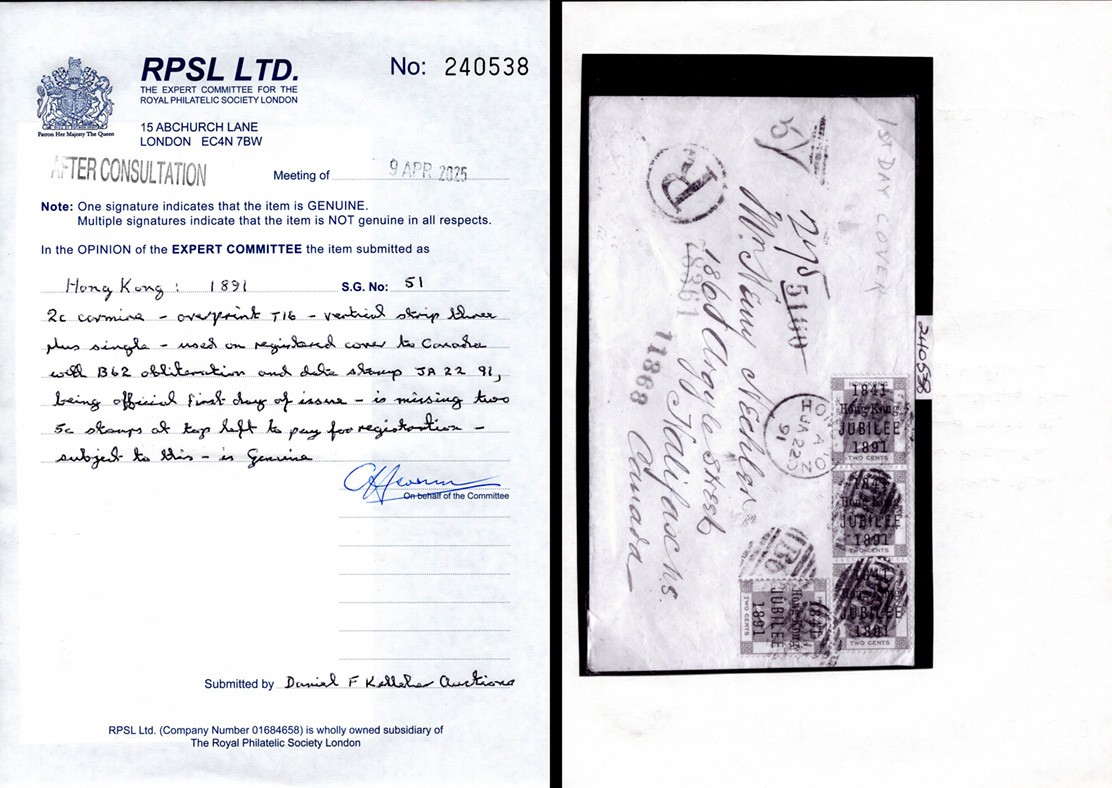 RPSL LTD.
No: 240538
THE EXPERT COMMITTEE FOR THE
ROYAL PHILATELIC SOCIETY LONDON
Patron Her Majesty The Queen
15 ABCHURCH LANE
LONDON EC4N 7BW
AFTER CONSULTATION
Meeting of 9 APR 2025
Note: One signature indicates that the item is GENUINE.
Multiple signatures indicate that the item is NOT genuine in all respects.
In the OPINION of the EXPERT COMMITTEE the item submitted as
Hong Kong: 1891 S.G. No: 51
2c carmine - overprint T16 - vertical strip three
plus single - used on registered cover to Canada
with B62 obliteration and date stamp JA 22 91,
being official first day of issue - is missing two
5c stamps at top left to pay for registration -
subject to this - is Genuine
On behalf of the Committee
Submitted by Daniel F Kelleher Auctions
RPSL Ltd. (Company Number 01684658) is wholly owned subsidiary of
The Royal Philatelic Society London
1st DAY COVER
R
5100
Mr. Henry Nechler
186 Argyle Street
Halifax N.S.
Canada
11868
240538
HON
A
JA 22
91
1841
Hong Kong
JUBILEE
1891
TWO CENTS
1841
Hong Kong
JUBILEE
1891
TWO CENTS
JUBILEE
1891
TWO CENTS
B6
1841
Hong Kong
JUBILEE
1891
TWO CENTS